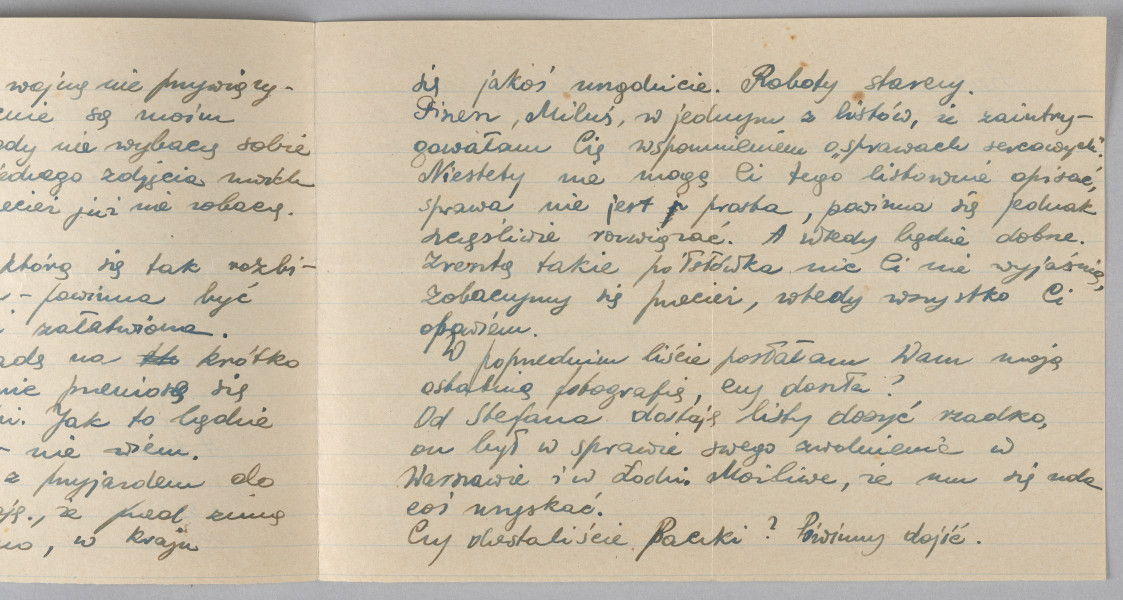 wojnę nie przywiązy-
enie są moim
ędy nie wybaczę sobie
ednego zdjęcia moich
ecież już nie zobaczę.
którą się tak rozbi-
- powinna być
i załatwiona.
adę na krótko
nie przeniosę się
i. Jak to będzie
- nie wiem.
z przyjazdem do
ję., że przed zimą
no, w kraju
się jakoś urządzicie. Roboty starczy.
Piszesz, Miluś, w jednym z listów, że zaintry-
gowałam Cię wspomnieniem o „sprawach sercowych".
Niestety nie mogę Ci tego listownie opisać,
sprawa nie jest prosta, powinna się jednak
szczęśliwie rozwiązać. A wtedy będzie dobrze.
Zresztą takie półsłówka nic Ci nie wyjaśnią,
zobaczymy się przecież, wtedy wszystko Ci
opowiem.
W poprzednim liście posłałam Wam moją
ostatnią fotografię, czy doszła?
Od Stefana dostaję listy dosyć rzadko,
on był w sprawie swego zwolnienia w
Warszawie i w Łodzi. Możliwe, że mu się uda
coś uzyskać.
Czy dostaliście Paczki? Powinny dojść.